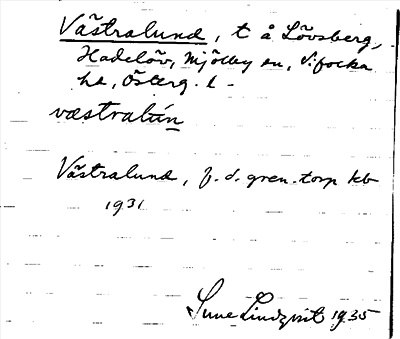 Västralund, t å Lövsberg,
Hadelöv, Mjölby sn, Vifocka
hd, Österg. l -
væstralún
Västralund, f.d. gren.torp kb
1931
Sune Lindqvist 1935